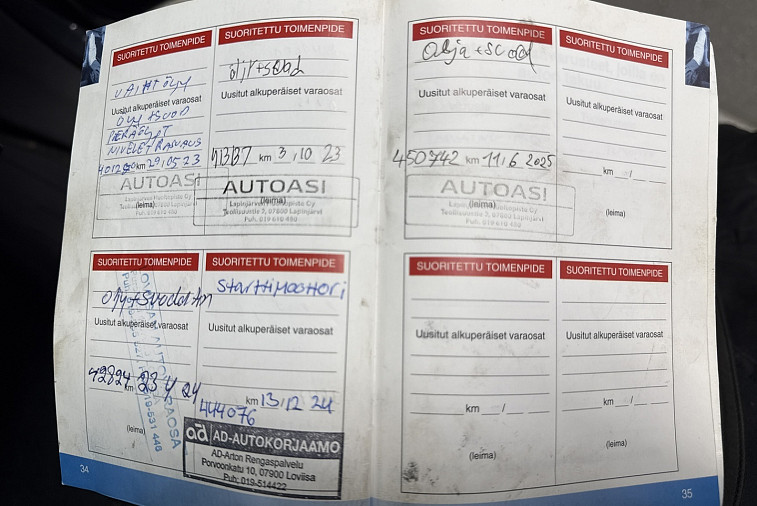 SUORITETTU TOIMENPIDE
VAIHT ÖLJY
Uusitut alkuperäiset varaosat
ÖLJY + SUOD
PERÄÖLJYT
NIVELET RASVAUS
km 29,05 23
AUTOASI
Lapinjärven Huoltopiste Oy
(leima)
Teollisuustie 2, 07800 Lapinjärvi
Puh. 019 610 480
SUORITETTU TOIMENPIDE
öljy+suod
Uusitut alkuperäiset varaosat
413137 km 3,10 23
AUTOASI
(leima)
Lapinjärven Huoltopiste Oy
Teollisuustie 2, 07800 Lapinjärvi
Puh. 019 610 480
SUORITETTU TOIMENPIDE
Uusitut alkuperäiset varaosat
km 23 4 24
(leima)
VARAOSA
019-531 446
SUORITETTU TOIMENPIDE
Starttimoottori
Uusitut alkuperäiset varaosat
km 13/12 24
444076
ad AD-AUTOKORJAAMO
AD-Arton Rengaspalvelu
Porvoonkatu 10, 07900 Loviisa
Puh: 019-514422
34
SUORITETTU TOIMENPIDE
Uusitut alkuperäiset varaosat
450742 km 11,6 2025
AUTOASI
(leima)
Lapinjärven Huoltopiste Oy
Teollisuustie 2, 07800 Lapinjärvi
Puh. 019 610 480
SUORITETTU TOIMENPIDE
Uusitut alkuperäiset varaosat
km __/__ ____
(leima)
SUORITETTU TOIMENPIDE
Uusitut alkuperäiset varaosat
km __/__ ____
(leima)
SUORITETTU TOIMENPIDE
Uusitut alkuperäiset varaosat
km __/__ ____
(leima)
35